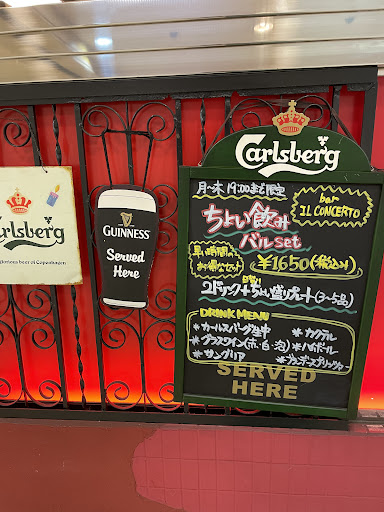 Carlsberg
glorious beer of Copenhagen
GUINNESS
Served
Here
Carlsberg
月〜木 19:00まで限定
bar
IL CONCERTO
ちょい飲み
バルset
早い時間の
お得なセット
¥1650(税込み)
2ドリンク+ちょい盛りプレート(3〜5品)
DRINK MENU
*カールスバーグ生中
*カクテル
*グラスワイン(赤・白・泡)
*ハイボール
*サングリア
SERVED
HERE